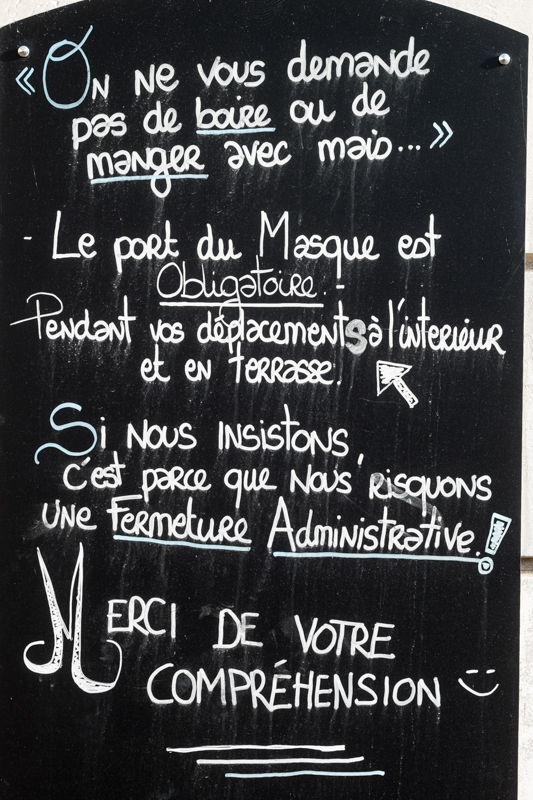 « On ne vous demande
pas de boire ou de
manger avec mais... »
- Le port du Masque est
Obligatoire. -
Pendant vos déplacements à l'interieur
et en terrasse.
Si nous insistons,
c'est parce que nous risquons
une Fermeture Administrative.!
MERCI DE VOTRE
COMPRÉHENSION